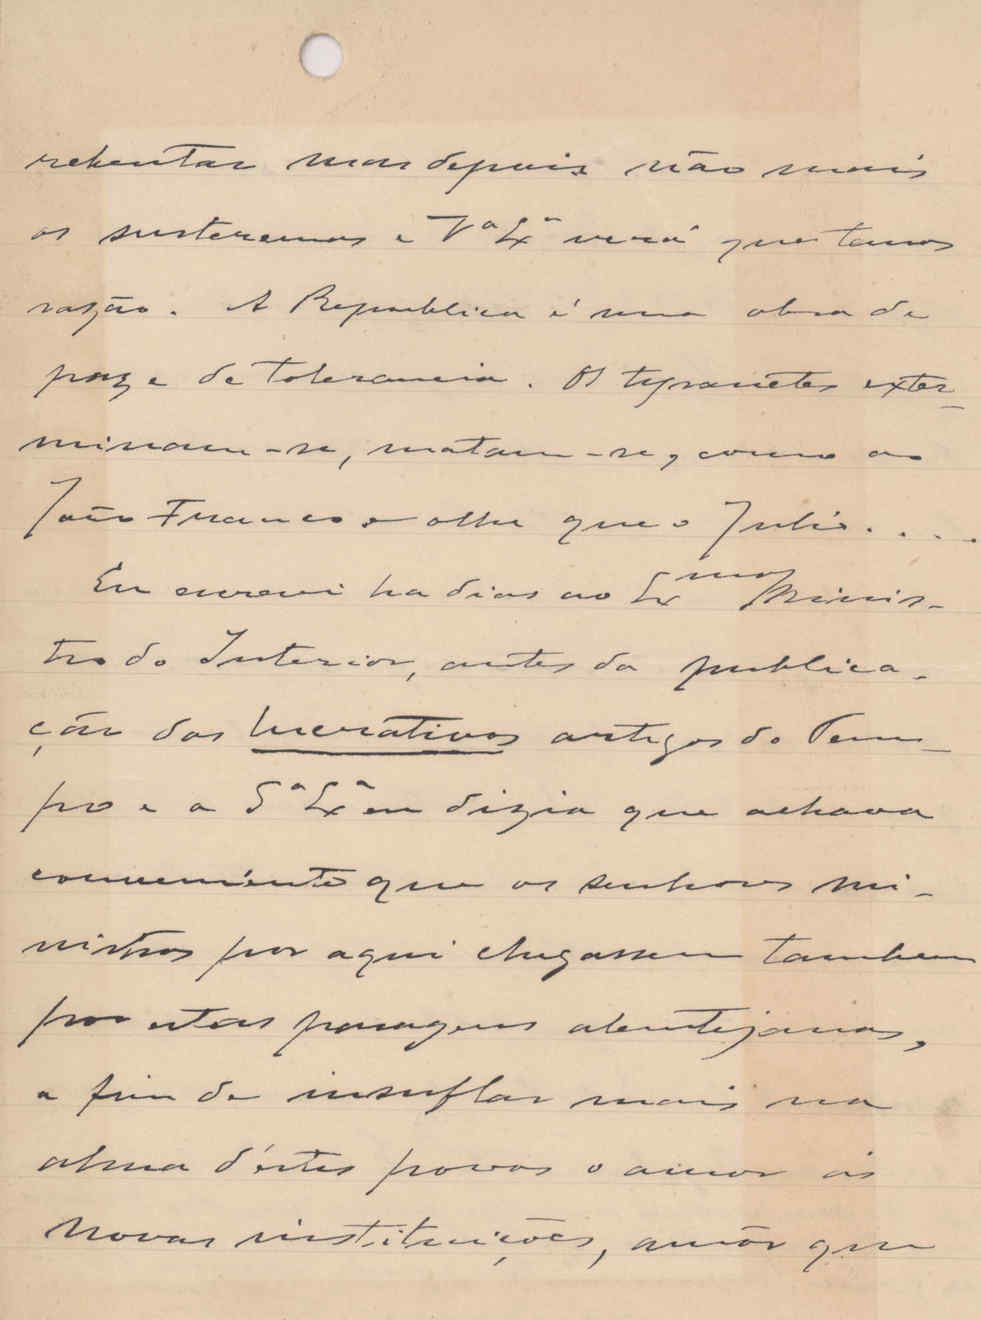 rebentar mas depois não mais
os susteremos e Vª Exª verá que temos
razão. A Republica é uma obra de
paz e de tolerancia. Os tyranetes exter-
minam-se, matam-se, como ao
João Franco e olhe que o Julio....
Eu escrevi ha dias ao Exmo Minis-
tro do Interior, antes da publica-
ção dos lucrativos artigos do Tem-
po e a Sª Exª eu dizia que achava
conveniente que os senhores mi-
nistros por aqui chegassem tambem
por estas paragens alentejanas,
a fim de insuflar mais na
alma d'estes povos o amor ás
novas instituições, amôr que